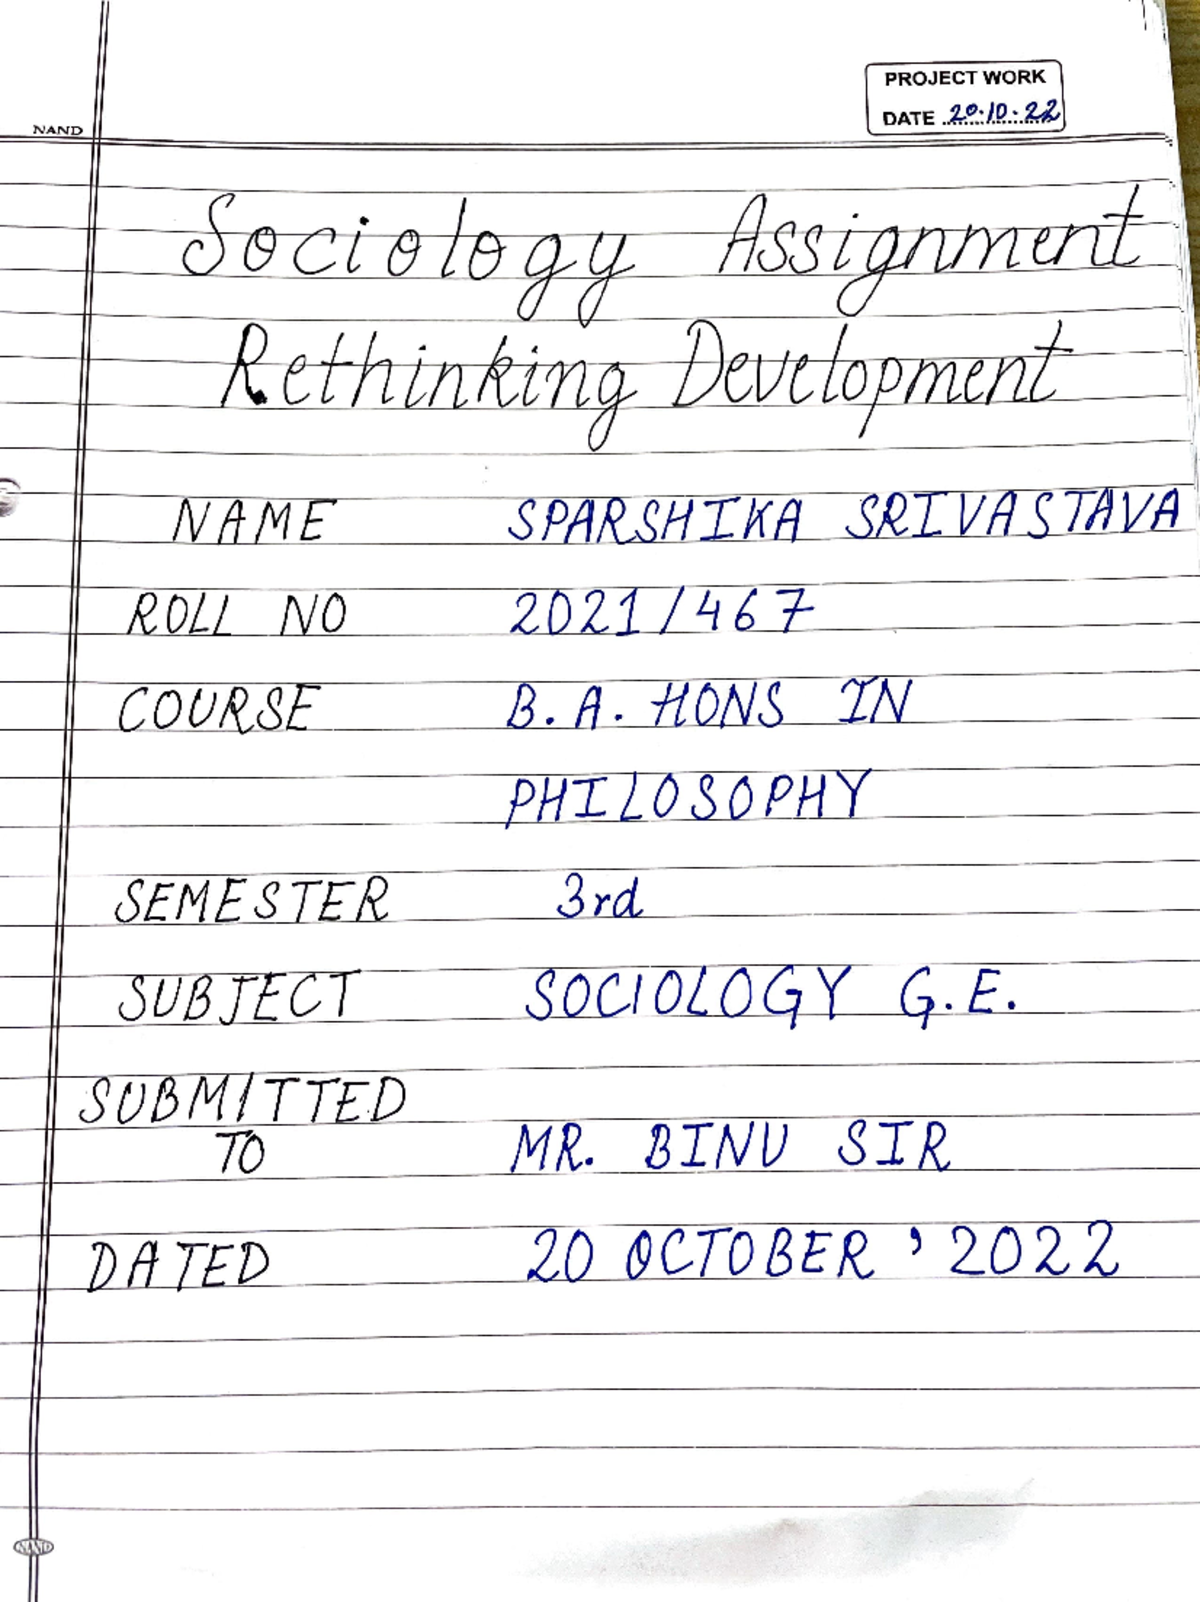 PROJECT WORK
DATE 20.10.22
NAND
Sociology Assignment
Rethinking Development
NAME SPARSHIKA SRIVASTAVA
ROLL NO 2021/467
COURSE B.A. HONS IN
PHILOSOPHY
SEMESTER 3rd
SUBJECT SOCIOLOGY G.E.
SUBMITTED
TO MR. BINU SIR
DATED 20 OCTOBER '2022
NAND